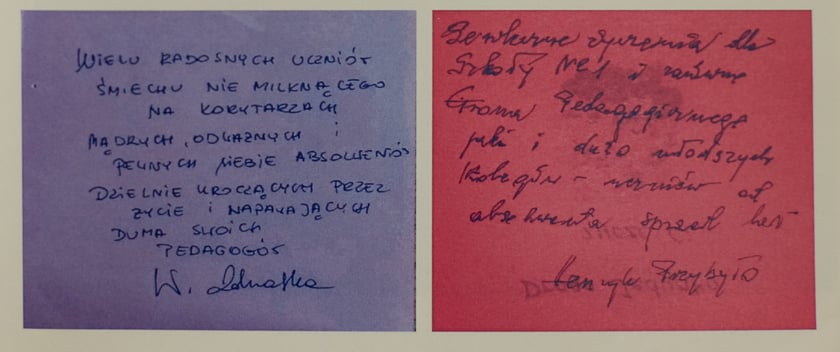 WIELU RADOSNYCH UCZNIÓW
ŚMIECHU NIE MILKNĄCEGO
NA KORYTARZACH
MĄDRYCH, ODWAŻNYCH i
PEWNYCH SIEBIE ABSOLWENTÓW
DZIELNIE KROCZĄCYCH PRZEZ
ŻYCIE i NAPAWAJĄCYCH
DUMĄ SWOICH
PEDAGOGÓW
W.
Serdeczne życzenia dla
Szkoły Nr 1 i zarówno
Grona Pedagogicznego
jak i dużo młodszych
Kolegów - uczniów od
absolwenta sprzed lat
Henryk Przybyło